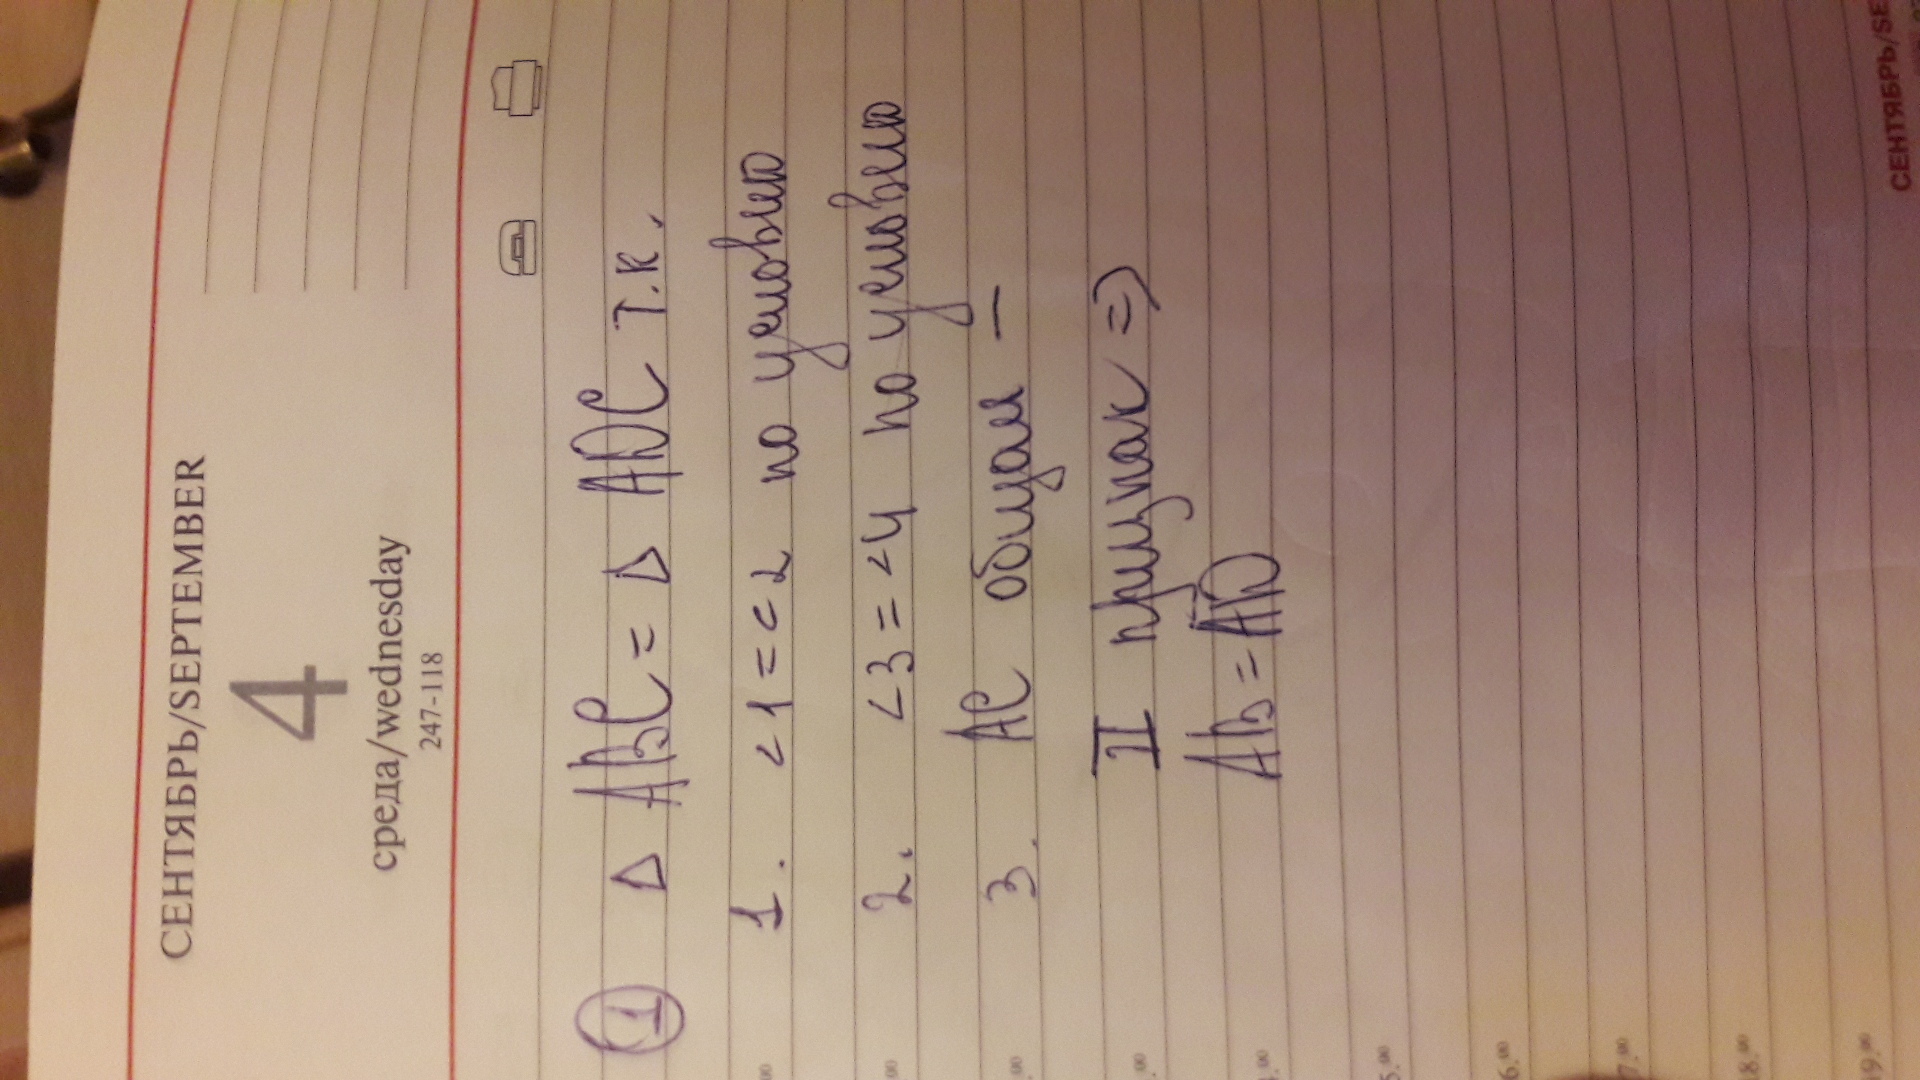 СЕНТЯБРЬ/SEPTEMBER
4
среда/wednesday
247-118
① Δ ABC = Δ ADC т.к.
1. <1=<2 по условию
2. <3=<4 по условию
3. AC общая –
II признак =>
AB=AD
5.00
6.00
7.00
8.00
19.00
СЕНТЯБРЬ/SE